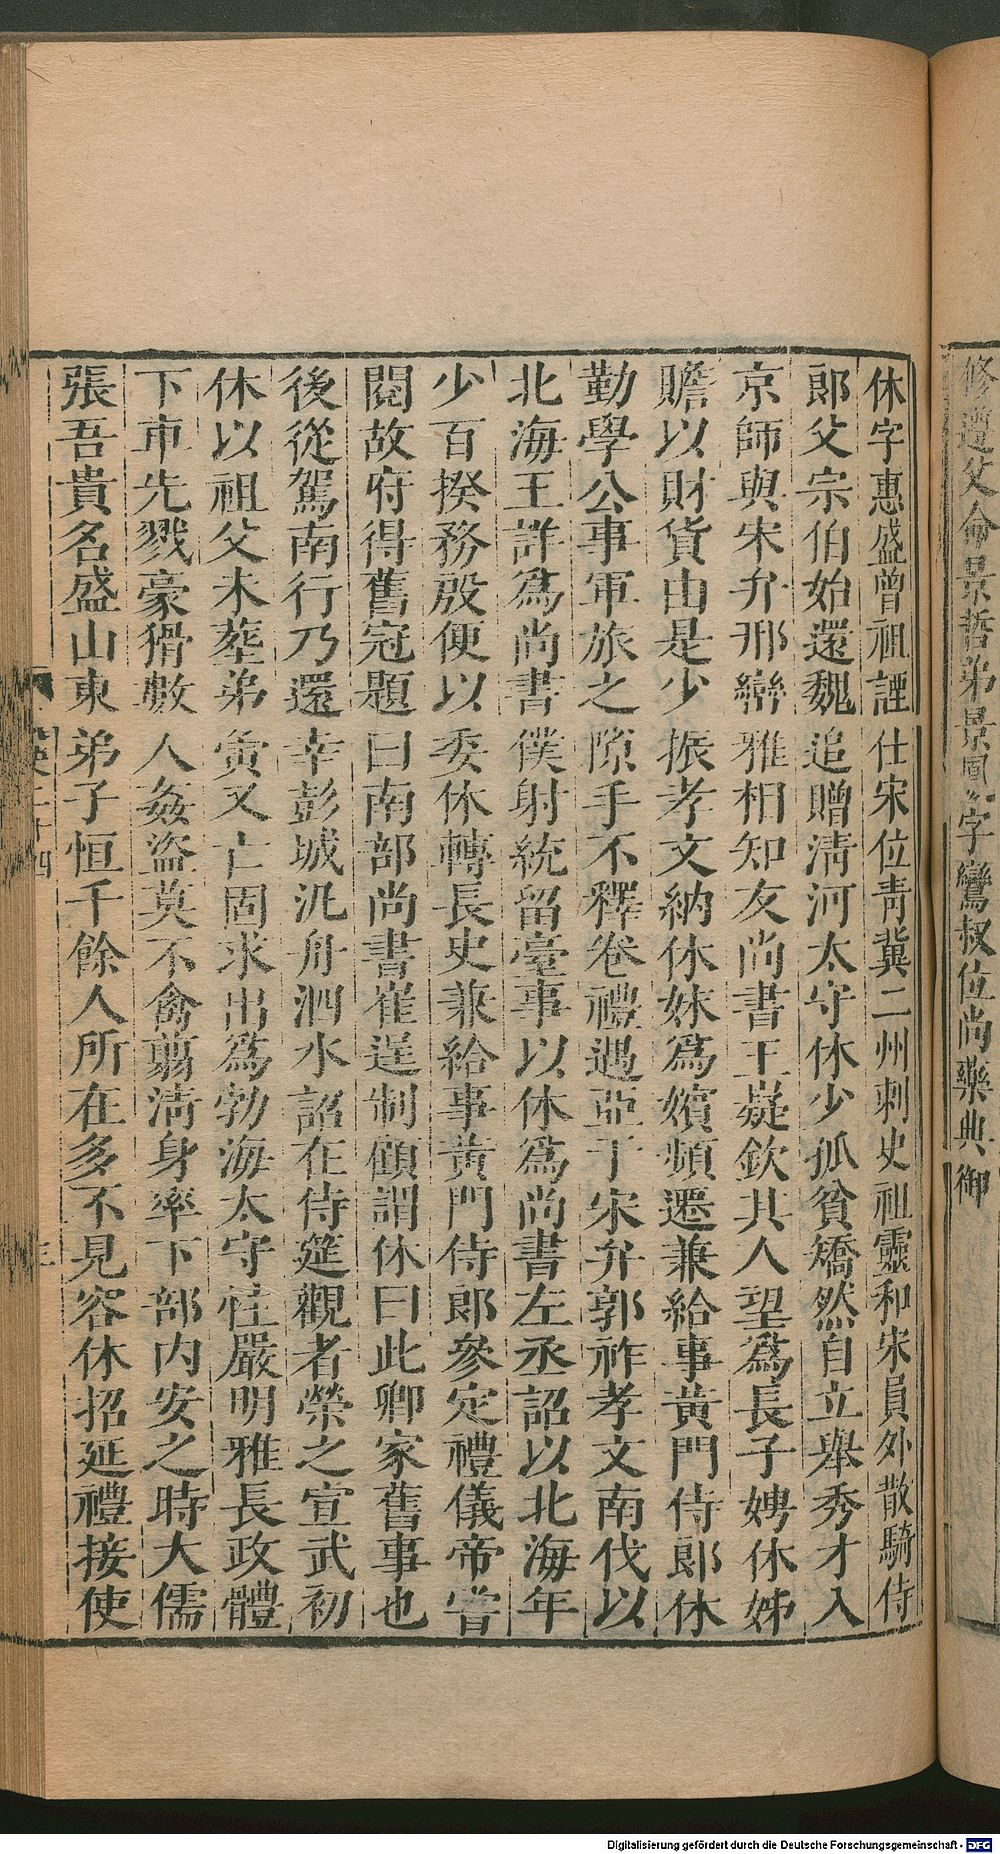 修遵父命景哲弟景鳳字鸞叔位尚藥典御
休字惠盛曾祖諲仕宋位靑冀二州刺史祖靈和宋員外散騎侍
郞父宗伯始還魏追贈淸河太守休少孤貧矯然自立舉秀才入
京師與宋弁邢巒雅相知友尚書王嶷欽其人望爲長子娉休姊
贍以財貨由是少振孝文納休妹爲嬪頻遷兼給事黃門侍郞休
勤學公事軍旅之隙手不釋卷禮遇亞于宋弁郭祚孝文南伐以
北海王詳爲尚書僕射統留臺事以休爲尚書左丞詔以北海年
少百揆務殷便以委休轉長史兼給事黃門侍郞參定禮儀帝嘗
閱故府得舊冠題曰南部尚書崔逞制顧謂休曰此卿家舊事也
後從駕南行乃還幸彭城汎舟泗水詔在侍筵觀者榮之宣武初
休以祖父未葬弟夤又亡固求出爲勃海太守性嚴明雅長政體
下車先戮豪猾數人姦盜莫不禽翦淸身率下部內安之時大儒
張吾貴名盛山東弟子恒千餘人所在多不見容休招延禮接使
Digitalisierung gefördert durch die Deutsche Forschungsgemeinschaft - DFG